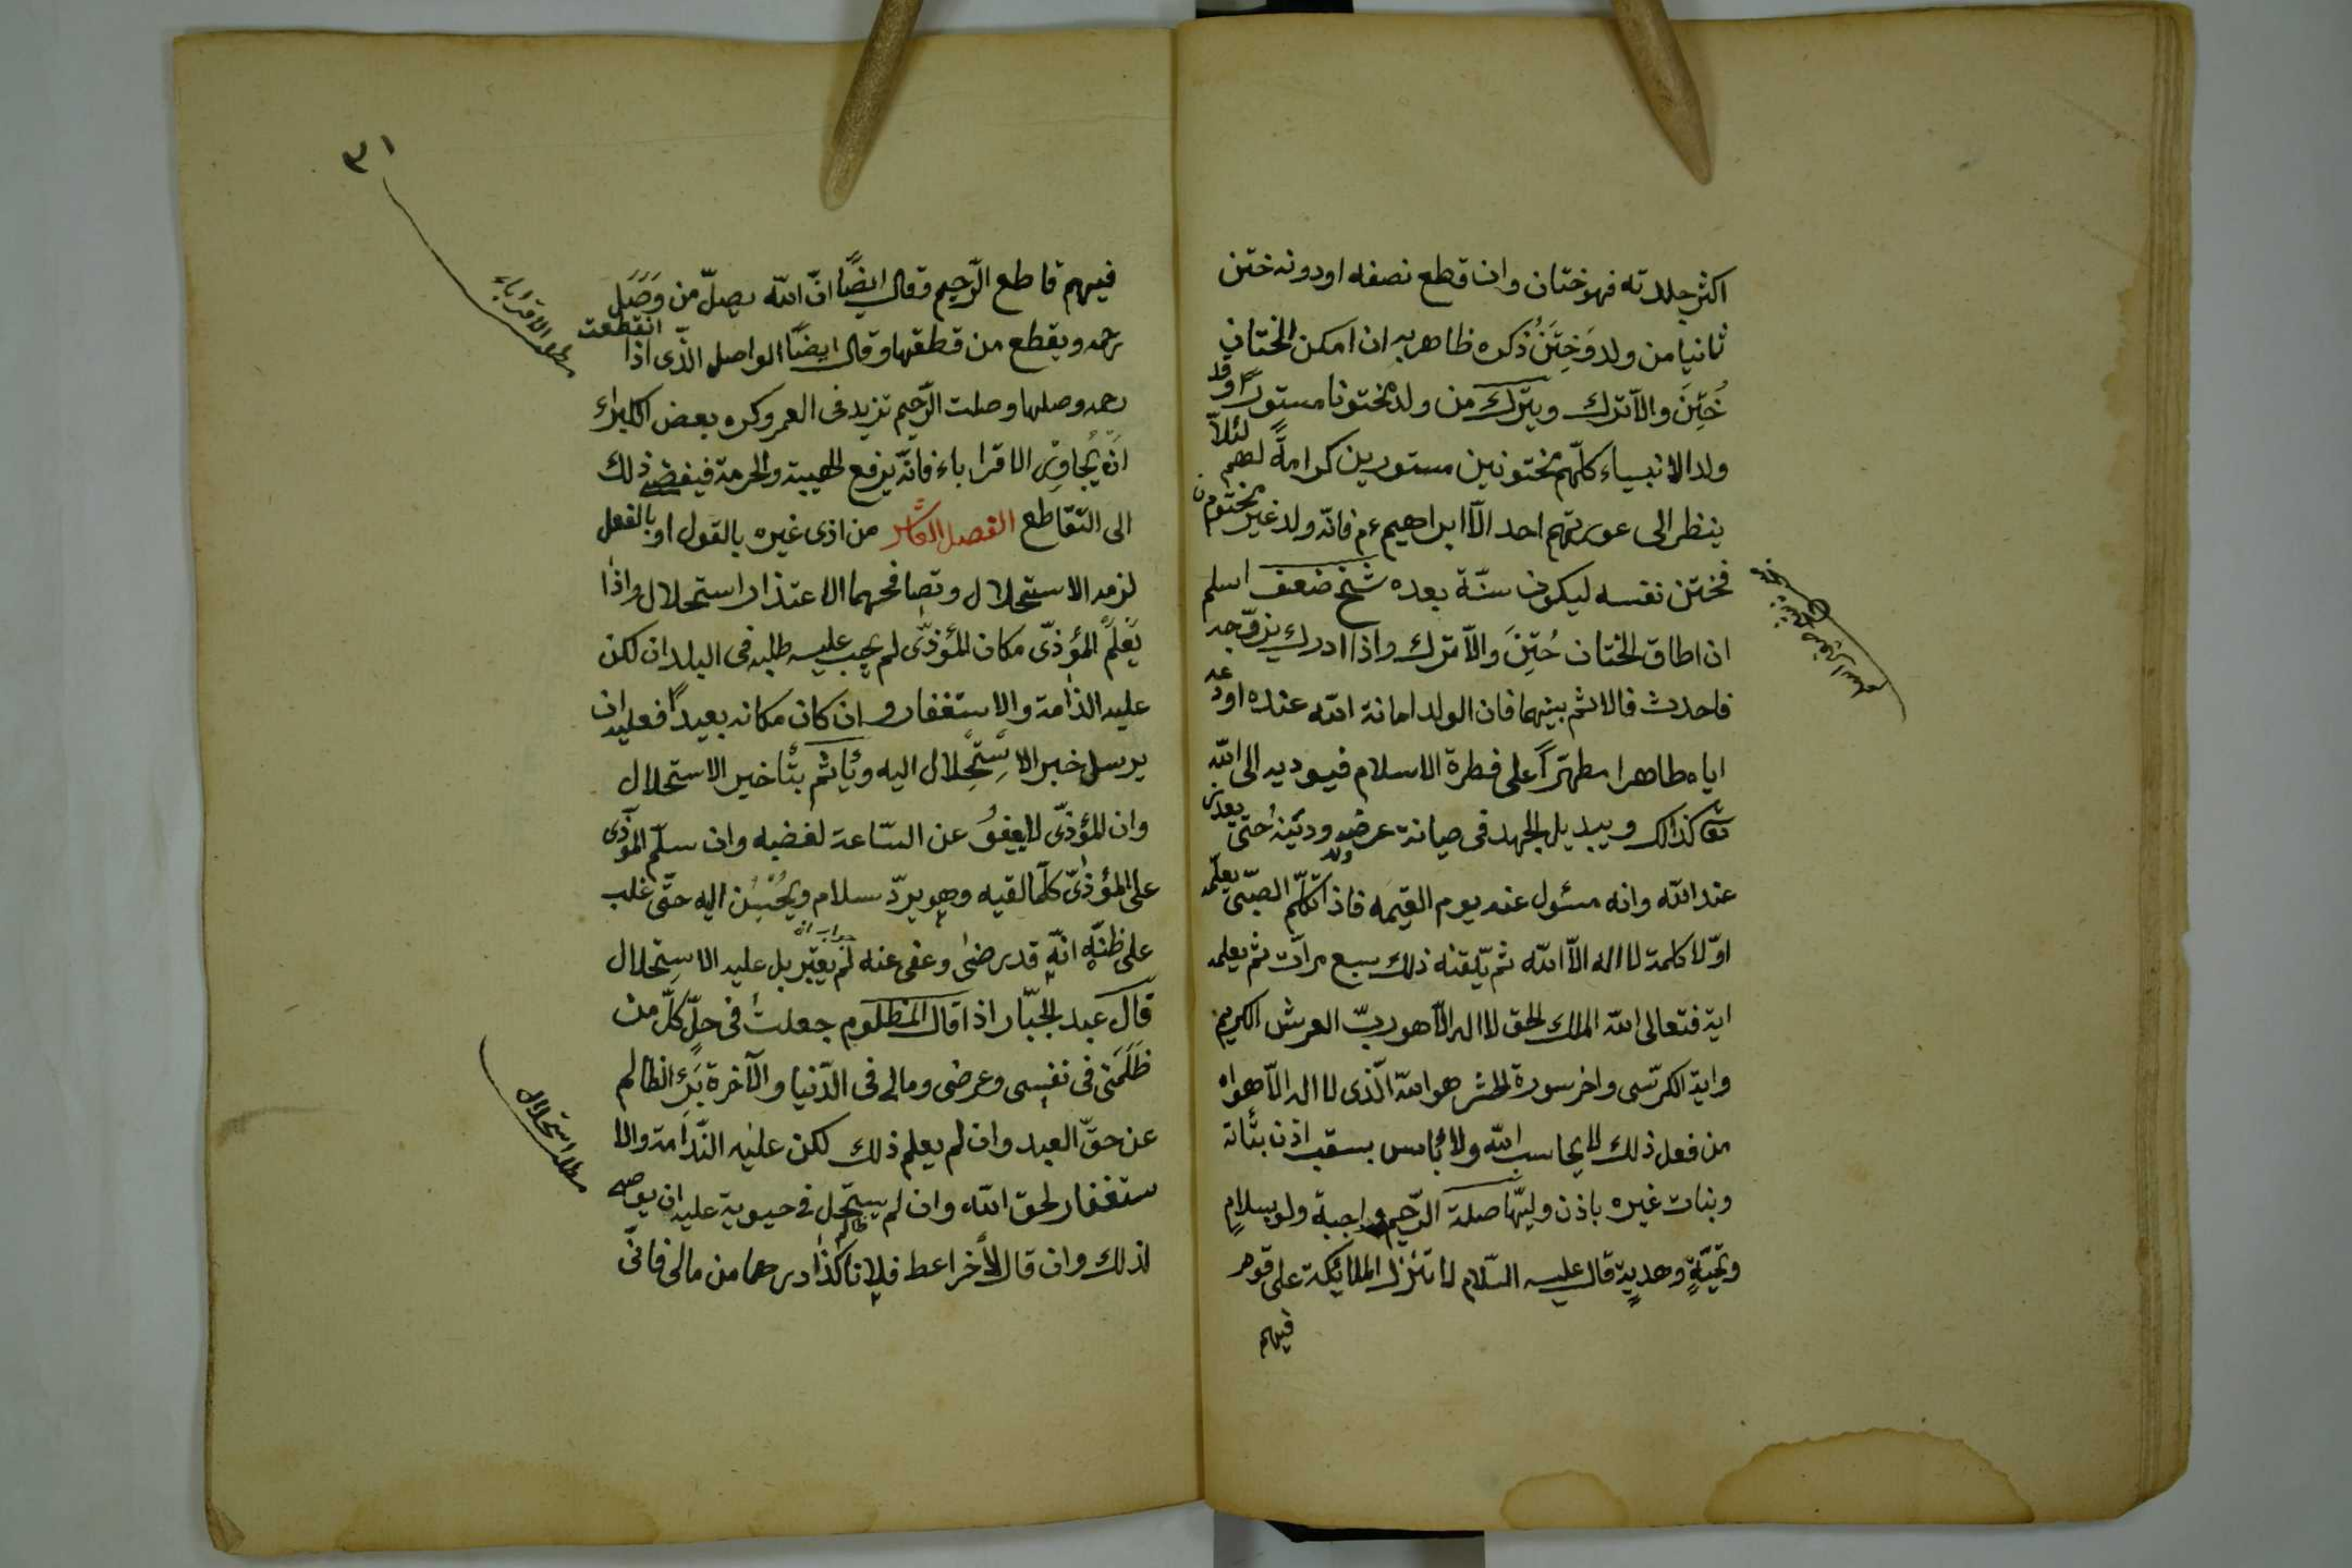 اكثر جلدته فهو ختان وان قطع نصفه او دونه ختن
ثانيا من ولد وَخِتَنُ ذكره ظاهر به ان امكن الختان
خُتِنَ والّا ترك ويترك من ولد مختونا مستورًا وقد
ولد الانبياء كلّهم مختونين مستورين كرامةً لهم لئلّا
ينظر الى عورتهم احد الّا ابراهيم عم فانّه ولد غير مختوم
فختن نفسه ليكون سنّة بعده شيخ ضعف اسلم
ان اطاق الختان خُتِنَ والّا ترك واذا ادرك يزوّجه
فاحدث فالاثم بينهما فان الولد امانة الله عنده اودعه
اياه طاهرا مطهّرًا على فطرة الاسلام فيوديه الى الله
تعا كذالك ويبديل الجهد فى صيانة عرضه ودينه حتى
عند الله وانه مسئول عنه يوم القيمه فاذا تكلّم الصبّى يعلّمه
اوّلا كلمة لا اله الّا الله ثم يلّقنه ذلك سبع مرآت ثم يعلمه
اية فتعالى الله الملك الحق لا اله الّا هو ربّ العرش الكريم
واية الكرسّى واخر سورة الحشر هو الله الّذى لا اله الّا هو اه
من فعل ذلك لا يحاسب الله ولا بأس بسقب اذن بناته
وبنات غيره باذن وليّها صلة الرّحيم واجبة ولو بسلامٍ
وتحيّةٍ وهديةٍ قال عليه السّلام لا تنزل الملائكة على قوم
فيهم
٣١
فيهم قاطع الرّحيم وقال ايضًا انّ الله يصلّ من وَصَلَ
رحمه ويقطع من قطقها وقال ايضًا الواصل الّذى اذا انقطعت
رحمه وصلها وصلت الرّحيم تزيد فى العمر وكره بعض الكبراء
انّه يُجاوِر الاقراباء فانّه يرفع الهيبة والحرمة فيفضى ذلك
الى التّقاطع الفصل العاشر من اذى غيره بالقول او بالفعل
لزمه الاستحلال وتصافحهما الاعتذار استحلال واذا
يَعْلَم المؤذّى مكان المؤذّى لم يجب عليه طلبه فى البلدان لكن
عليه الذامة والاستغفار وان كان مكانه بعيدًا فعليه ان
يرسل خبر الاسْتِحْلال اليه ويأثم بتأخير الاستحلال
وان المؤذّى لا يعفوُ عن السّاعة لغضبه وان سلّم المؤذّى
على المؤذىّ كلّما لقيه وهو يردّ سلام ويُحْسِن اليه حتّى غلب
على ظنّه انّه قد رضى وعفى عنه لم يعتبر بل عليه الاستحلال
جواب ان
قال عبد الجبّار اذا قال المظلوم جعلتُ فى حلّ كلّ من
ظَلَمَنى فى نفسى وعرضى ومالى فى الدّنيا والآخرة بَرِءَ الظالم
عن حقّ العبد وان لم يعلم ذلك لكن عليه النّدامة والا
ستغفار لحق الله وان لم يستحل فى حيوية عليه ان يوصى
لذلك وان قال لأخر اعط فلانا كذا درهما من مالى فانّى
ظالم
استحلال